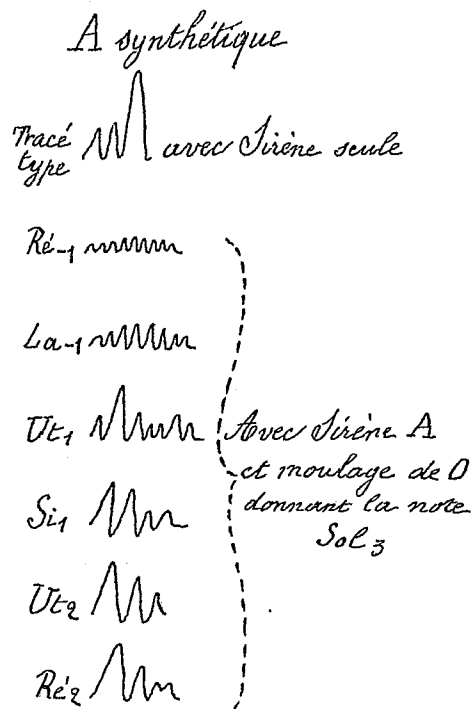 A synthétique
Tracé
type
avec Sirène seule
Ré-1
La-1
Ut1
Avec Sirène A
et moulage de O
donnant la note
Sol3
Si1
Ut2
Ré2